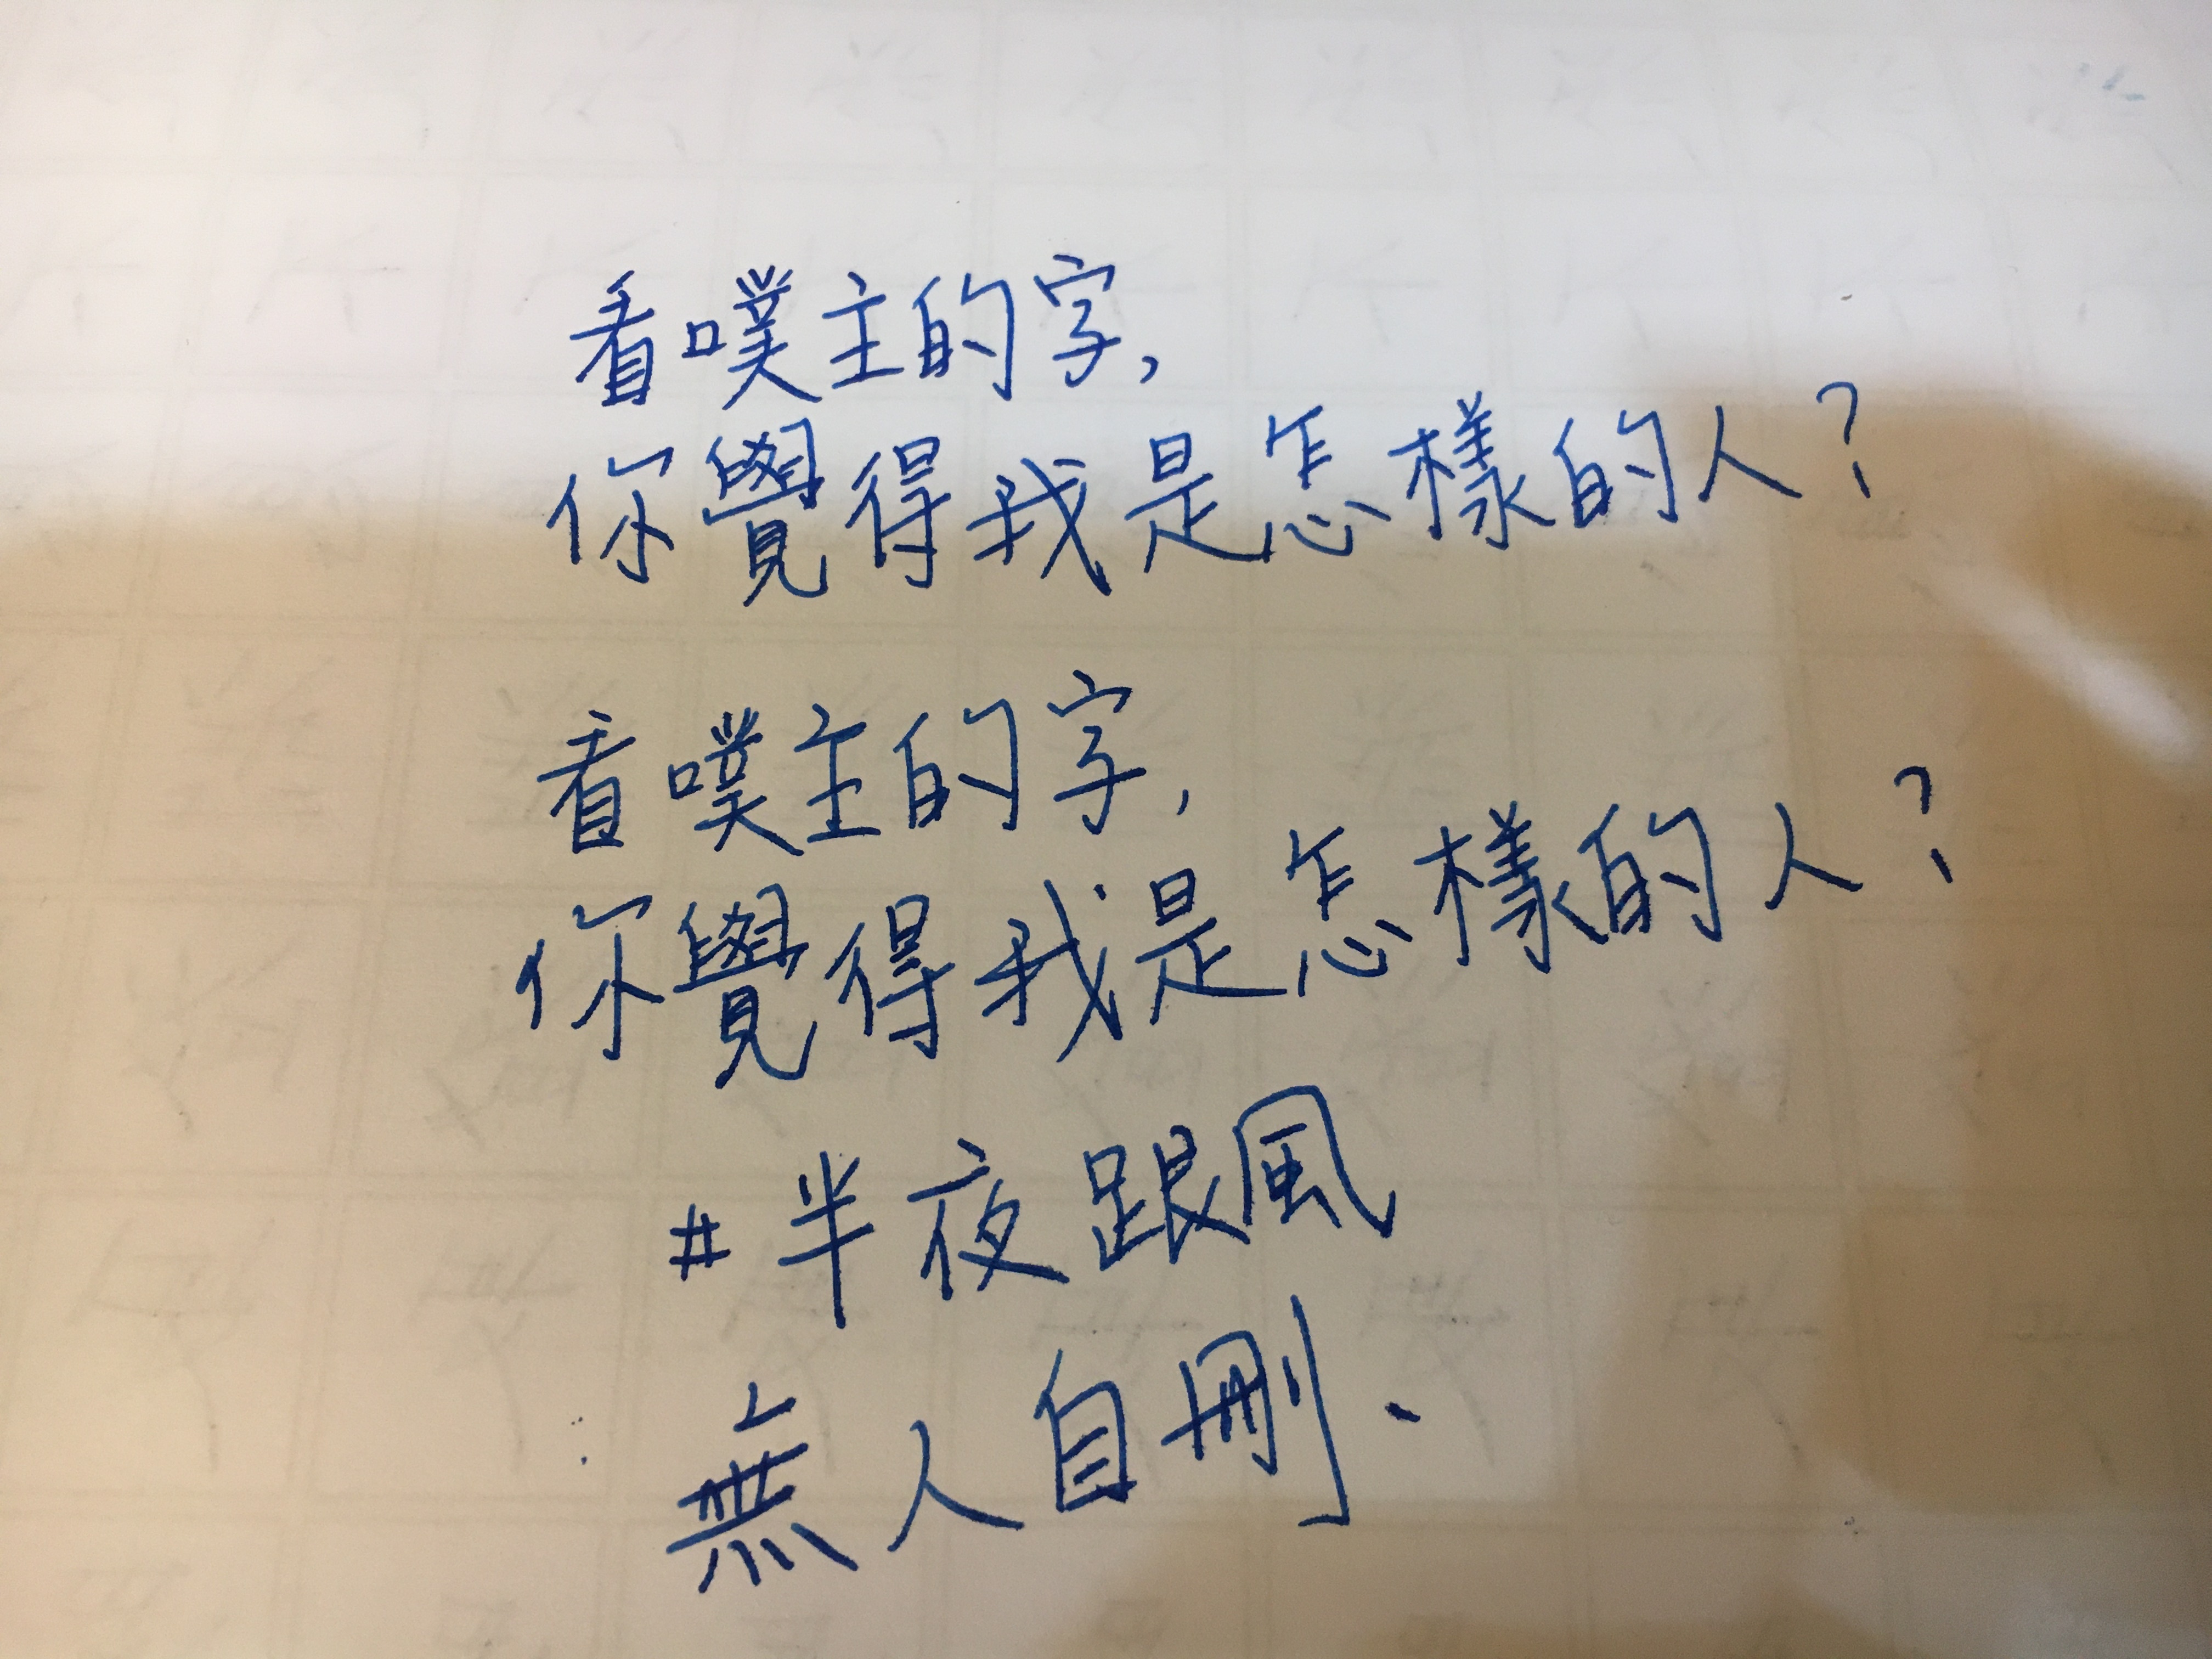 看噗主的字,
你覺得我是怎樣的人?
看噗主的字,
你覺得我是怎樣的人?
#半夜跟風
無人自刪、